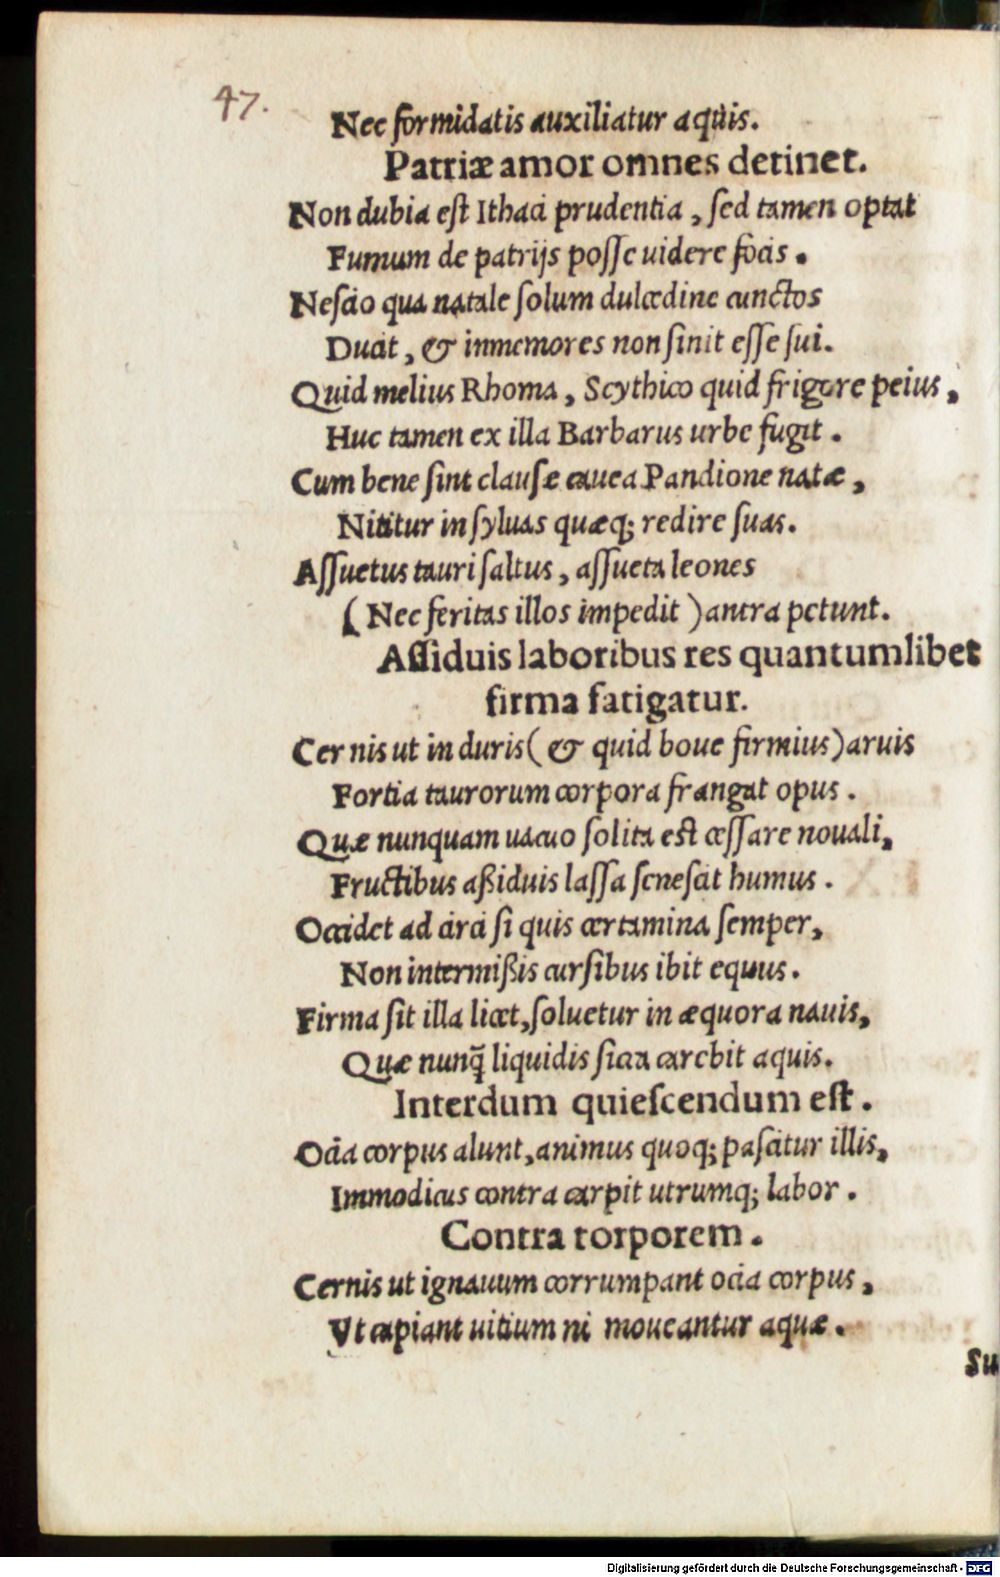 47.
Nec formidatis auxiliatur aquis.
Patriæ amor omnes detinet.
Non dubia eſt Ithaci prudentia, ſed tamen optat
Fumum de patrijs poſſe uidere focis.
Neſcio qua natale ſolum dulcedine cunctos
Ducit, & inmemores non ſinit eſſe ſui.
Quid melius Rhoma, Scythico quid frigore peius,
Huc tamen ex illa Barbarus urbe fugit.
Cum bene ſint clauſæ cauea Pandione natæ,
Nititur in ſyluas quæq; redire ſuas.
Aſſuetus tauri ſaltus, aſſueta leones
(Nec feritas illos impedit) antra petunt.
Aſſiduis laboribus res quantumlibet
firma fatigatur.
Cernis ut in duris (& quid boue firmius) aruis
Fortia taurorum corpora frangat opus.
Quæ nunquam uacuo ſolita eſt ceſſare nouali,
Fructibus aßiduis laſſa ſeneſcit humus.
Occidet ad circi ſi quis certamina ſemper,
Non intermißis curſibus ibit equus.
Firma ſit illa licet, ſoluetur in æquora nauis,
Quæ nunq̃ liquidis ſicca carebit aquis.
Interdum quieſcendum eſt.
Ocia corpus alunt, animus quoq; paſcitur illis,
Immodicus contra carpit utrumq; labor.
Contra torporem.
Cernis ut ignauum corrumpant ocia corpus,
Vt capiant uitium ni moueantur aquæ.
Su
Digitalisierung gefördert durch die Deutsche Forschungsgemeinschaft - DFG